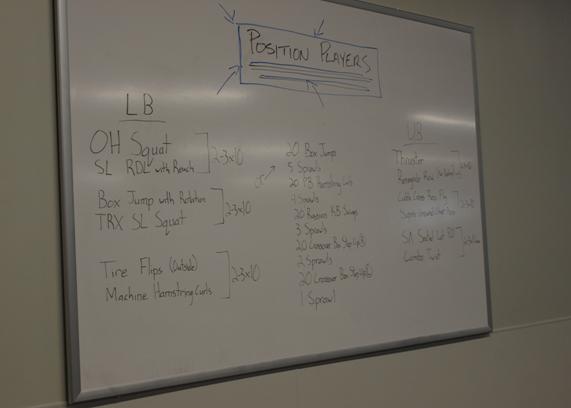 POSITION PLAYERS
LB
OH Squat
SL RDL with Reach
2-3x10
Box Jump with Rotation
TRX SL Squat
2-3x10
Tire Flips (Outside)
Machine Hamstring Curls
2-3x10
or
20 Box Jump
5 Sprawls
20 PB Hamstring Curls
4 Sprawls
20 KB Swings
3 Sprawls
20 Crossover Box Step Up (R)
2 Sprawls
20 Crossover Box Step Up (L)
1 Sprawl
UB
Thruster
Renegade Row
Cable Cross
SA
Twist